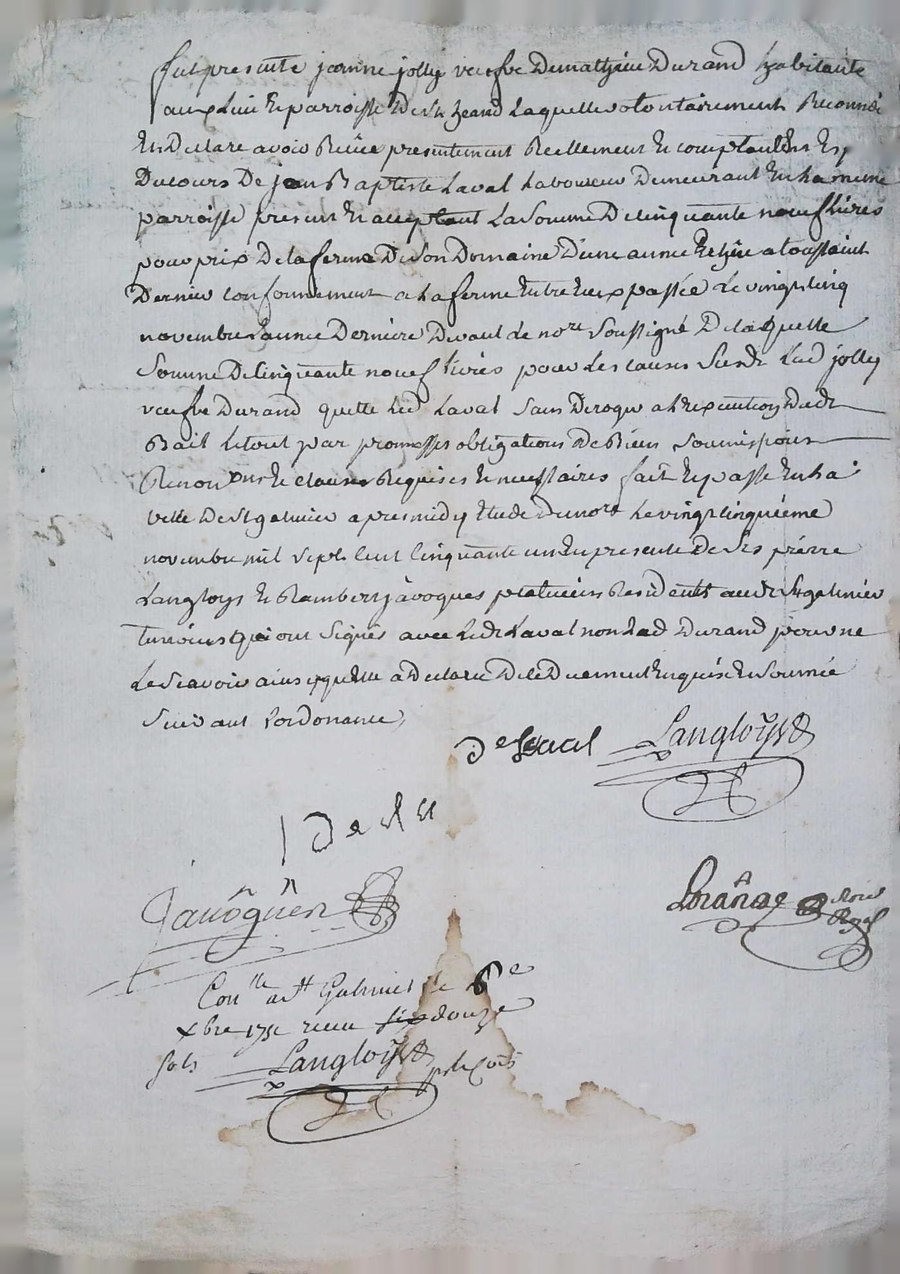 fut presente jeanne jolly veufve De mathieu Durand habitante
au Lieu et parroisse De St heand Laquelle volontairement Reconnoi
En Declare avoir Reçue presentement Reellement et comptant En Esp
Ducours De jean Baptiste Laval Laboureur Demeurant En La meme
parroisse present et acceptant La Somme De Cinquante neuf Livres
pour prix De la ferme De Son Domaine D'une année echue a toussaint
Dernier conformement a La ferme Entre Eux passée Le vingt cinq
novembre Lannee Derniere Devant Le nore Soussigné De laquelle
Somme De Cinquante neuf Livres pour Les causes Susd Lad jolly
veufve Durand quitte Led Laval Sans Deroger a L'Execution Dudt
Bail Le tout par promesses obligations De Biens Soumissions
Renonons Et clauses Requises Et necessaires fait Et passé En La
ville De St galmier apres midy Etude Du nore Le vingt cinquieme
novembre mil sept Cent Cinquante un En presence De Srs pierre
Langloys Et Rambert javoques praticiens Residents aud St galmier
temoins qui ont Signés avec Ledt Laval non Lad Durand pour ne
Le Scavoir ainsy quelle a Declaré De Ce Duement Enquise En Sommée
Suivant L'ordonance,
De Laval Langloys
Javogues
Lorañge Nore Royal
Conlle a St Galmier le 6e
xbre 1751 receu six douze
sols Langloys